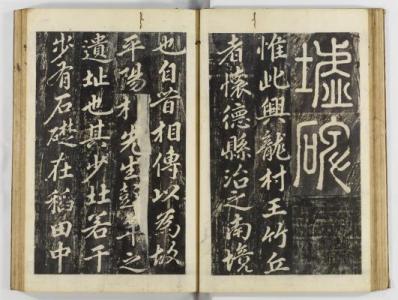 墟碑
惟此興龍村王竹丘
者懷德縣治之南境
也自昔相傳以爲故
平陽朴先生彭年之
遺址也其少北若干
步有石礎在稻田中